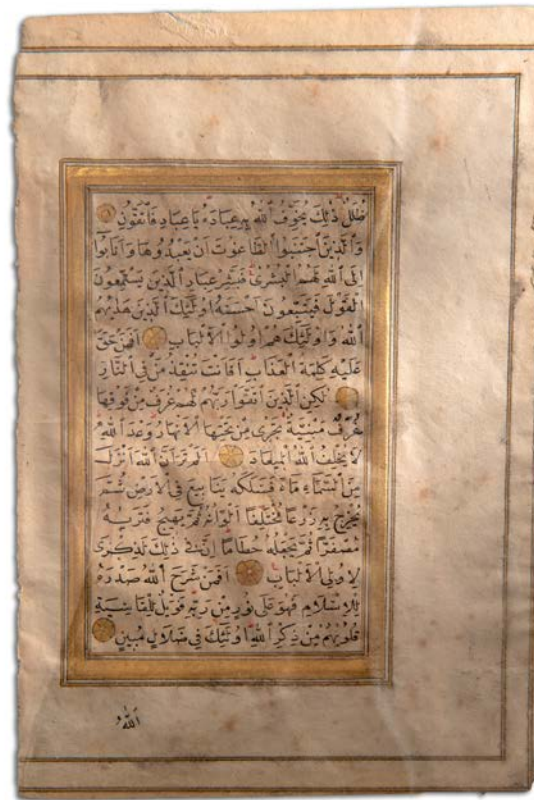 ظُلَلٌ ذٰلِكَ يُخَوِّفُ ٱللّٰهُ بِهٖ عِبَادَهٗ يَا عِبَادِ فَاتَّقُونِ
وَٱلَّذِينَ ٱجْتَنَبُوا ٱلطَّاغُوتَ اَنْ يَعْبُدُوهَا وَاَنَابُوا
اِلَى ٱللّٰهِ لَهُمُ ٱلْبُشْرٰى فَبَشِّرْ عِبَادِ ٱلَّذِينَ يَسْتَمِعُونَ
ٱلْقَوْلَ فَيَتَّبِعُونَ اَحْسَنَهُ اُولٰئِكَ ٱلَّذِينَ هَدٰيهُمُ
ٱللّٰهُ وَاُولٰئِكَ هُمْ اُولُوا ٱلْاَلْبَابِ اَفَمَنْ حَقَّ
عَلَيْهِ كَلِمَةُ ٱلْعَذَابِ اَفَاَنْتَ تُنْقِذُ مَنْ فِي ٱلنَّارِ
لٰكِنِ ٱلَّذِينَ ٱتَّقَوْا رَبَّهُمْ لَهُمْ غُرَفٌ مِنْ فَوْقِهَا
غُرَفٌ مَبْنِيَّةٌ تَجْرِى مِنْ تَحْتِهَا ٱلْاَنْهَارُ وَعْدَ ٱللّٰهِ
لَا يُخْلِفُ ٱللّٰهُ ٱلْمِيعَادَ اَلَمْ تَرَ اَنَّ ٱللّٰهَ اَنْزَلَ
مِنَ ٱلسَّمَاءِ مَاءً فَسَلَكَهُ يَنَابِيعَ فِي ٱلْاَرْضِ ثُمَّ
يُخْرِجُ بِهٖ زَرْعًا مُخْتَلِفًا اَلْوَانُهُ ثُمَّ يَهِيجُ فَتَرٰيهُ
مُصْفَرًّا ثُمَّ يَجْعَلُهُ حُطَامًا اِنَّ فِي ذٰلِكَ لَذِكْرٰى
لِاُولِي ٱلْاَلْبَابِ اَفَمَنْ شَرَحَ ٱللّٰهُ صَدْرَهُ
لِلْاِسْلَامِ فَهُوَ عَلٰى نُورٍ مِنْ رَبِّهٖ فَوَيْلٌ لِلْقَاسِيَةِ
قُلُوبُهُمْ مِنْ ذِكْرِ ٱللّٰهِ اُولٰئِكَ فِي ضَلَالٍ مُبِينٍ
ٱللّٰهُ